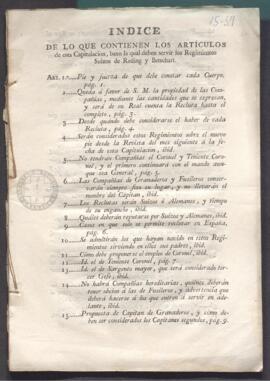 15-59
INDICE
DE LO QUE CONTIENEN LOS ARTÍCULOS
de esta Capitulacion, baxo la qual deben servir los Regimientos
Suizos de Reding y Betschart.
ART. 1.º....Pie y fuerza de que debe constar cada Cuerpo,
pag. 1.
2.....Queda á favor de S. M. la propiedad de las Com-
pañías, mediante las cantidades que se expresan,
y será de su Real cuenta la Recluta hasta el
completo, pág. 3.
3.....Desde quando debe considerarse el haber de cada
Recluta, pág. 4.
4.....Serán considerados estos Regimientos sobre el nuevo
pie desde la Revista del mes siguiente á la fe-
cha de esta Capitulacion, ibid.
5.....No tendrán Compañías el Coronel y Teniente Coro-
nel, y el primero continuará con el mando aun-
que sea General, pág. 5.
6.....Las Compañías de Granaderos y Fusileros conser-
varán siempre fixo su lugar, y no llevarán el
nombre del Capitan, ibid.
7.....Los Reclutas serán Suizos ó Alemanes, y tiempo
de su enganche, ibid.
8.....Quáles deberán reputarse por Suizos y Alemanes, ibid.
9.....Casos en que solo se permite reclutar en España,
pag. 6.
10.....Se admitirán los que hayan nacido en estos Regi-
mientos sirviendo en ellos sus padres, ibid.
11.....Cómo debe proponerse el empleo de Coronel, ibid.
12.....Id. el de Teniente Coronel, pág. 7.
13.....Id. el de Sargento mayor, que será considerado ter-
cer Gefe, ibid.
14.....No habrá Compañías hereditarias, quiénes deberán
tener opcion á las de Fusileros, y advertencia que
deberá hacerse á los que entren á servir en ade-
lante, ibid.
15.....Propuesta de Capitan de Granaderos, y cómo de-
ben ser considerados los Capitanes segundos, pág. 9.